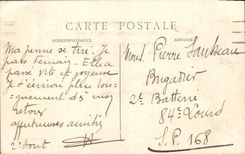 CARTE POSTALE
CORRESPONDANCE
Ma permè se tire. Je
pars demain. Elle a
passé vite et joyeuse
je t'écrirai plus lon-
guement dès mon
retour
affectueuses amitiés
22 Aout
Mons Pierre
Brigadier
2e Batterie
84e Lourd
S.P. 168